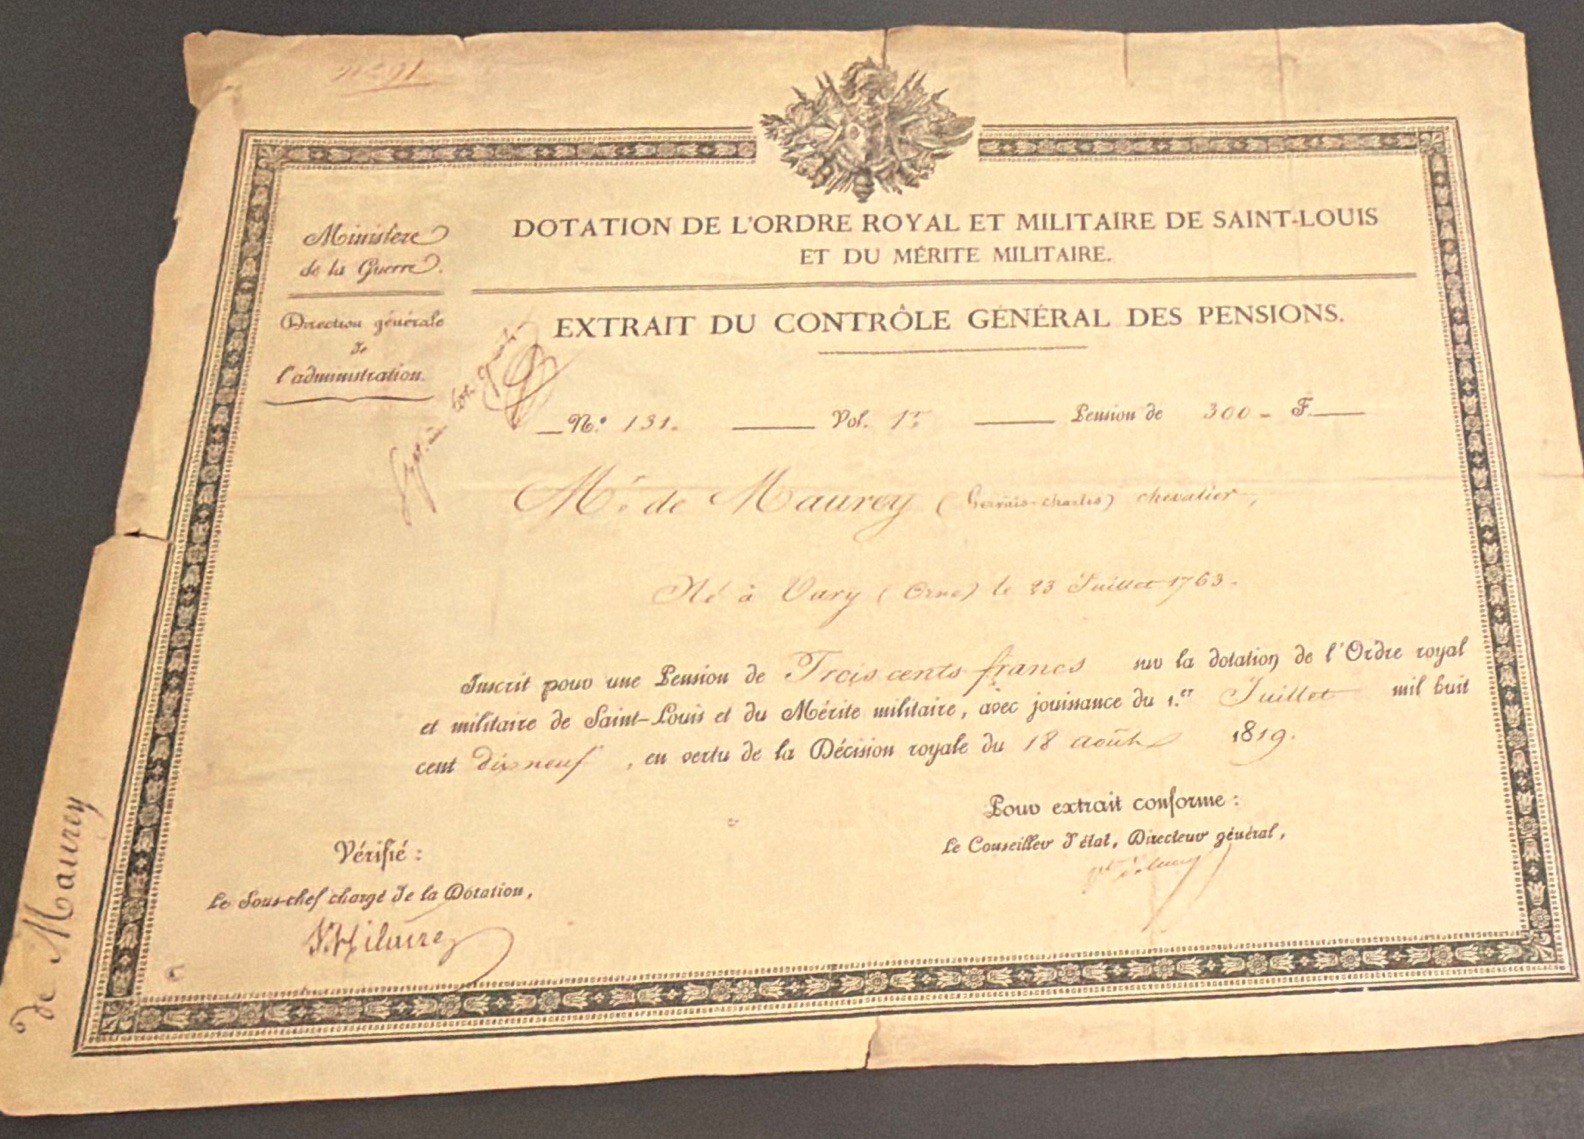 Ministère
de la Guerre.
Direction générale
de
l'administration.
DOTATION DE L'ORDRE ROYAL ET MILITAIRE DE SAINT-LOUIS
ET DU MÉRITE MILITAIRE.
EXTRAIT DU CONTRÔLE GÉNÉRAL DES PENSIONS.
N.º 131. Vol. 1er Pension de 300 - F.
Mr. de Maurey (Gervais-Charles) chevalier,
Né à Vary (Orne) le 23 Juillet 1763.
Inscrit pour une Pension de Trois cents francs sur la dotation de l'Ordre royal
et militaire de Saint-Louis et du Mérite militaire, avec jouissance du 1.er Juillet mil huit
cent dix neuf, en vertu de la Décision royale du 18 août 1819.
Pour extrait conforme :
Le Conseiller d'état, Directeur général,
Vérifié :
Le Sous-chef chargé de la Dotation,
St Hilaire
de Maurey